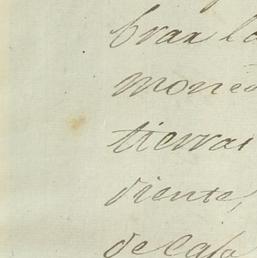 bran la
mone
tierras
diente,
de Casa